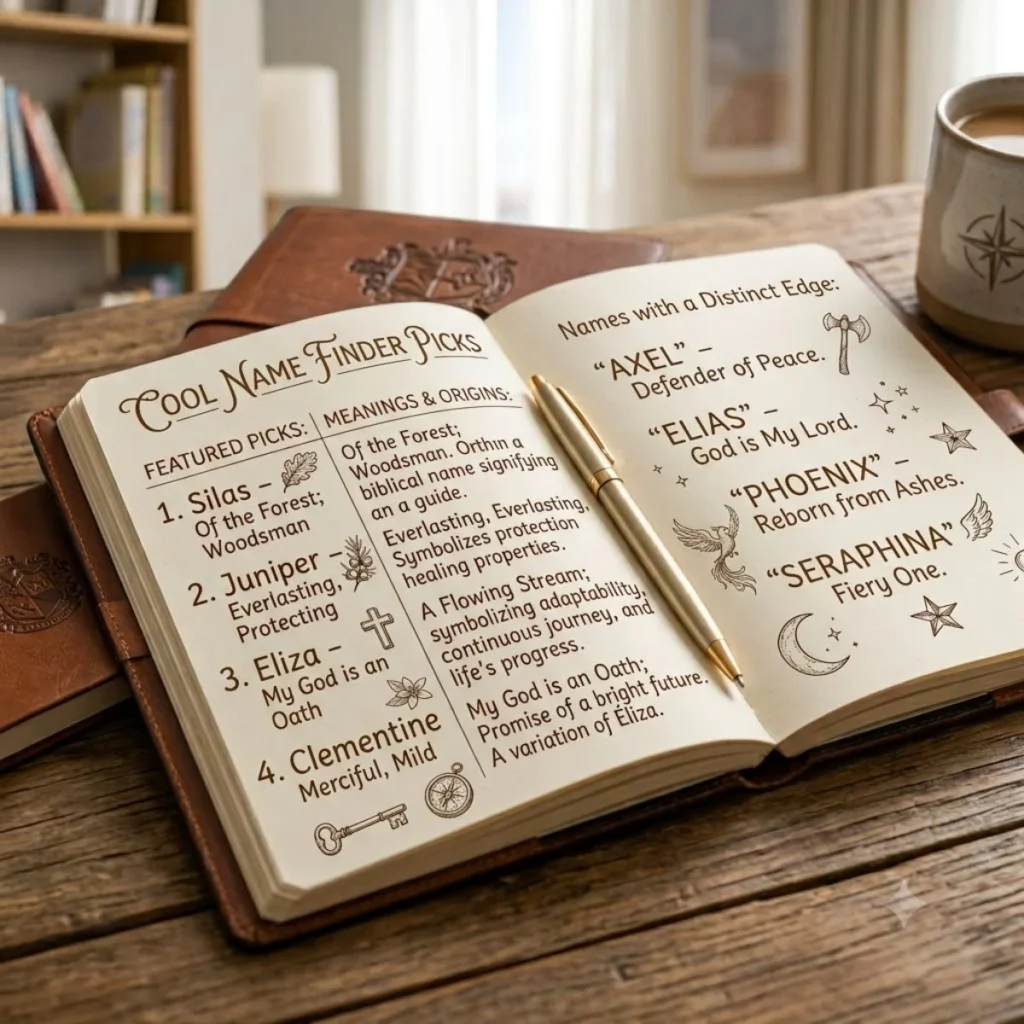 COOL NAME FINDER PICKS
FEATURED PICKS:
1. Silas –
Of the Forest;
Woodsman
2. Juniper –
Everlasting,
Protecting
3. Eliza –
My God is an
Oath
4. Clementine
Merciful, Mild
MEANINGS & ORIGINS:
Of the Forest;
Woodsman. Orthın a
biblical name signifying
an a guide.
Everlasting, Everlasting,
Symbolizes protection
healing properties.
A Flowing Stream;
symbolizing adaptability,
continuous journey, and
life's progress.
My God is an Oath;
Promise of a bright future.
A variation of Eliza.
Names with a Distinct Edge:
"AXEL" –
Defender of Peace.
"ELIAS" –
God is My Lord.
"PHOENIX" –
Reborn from Ashes.
"SERAPHINA"
Fiery One.